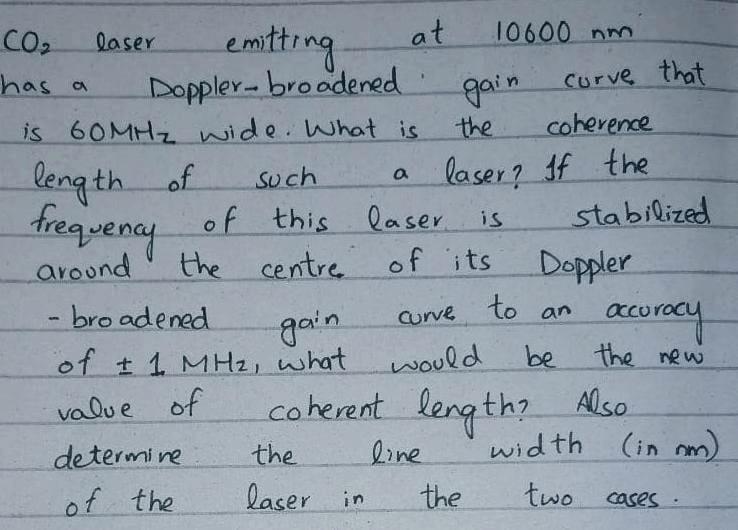 CO₂ laser emitting at 10600 nm
has a Doppler-broadened gain curve that
is 60MHz wide. What is the coherence
length of such a laser? If the
frequency of this laser is stabilized
around the centre of its Doppler
- broadened gain curve to an accuracy
of ± 1 MHz, what would be the new
value of coherent length? Also
determine the line width (in nm)
of the laser in the two cases.